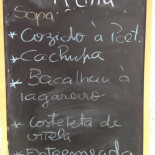 Sopa:
* Cozido à Port.
* Cachupa
* Bacalhau à
lagareiro
* Costeleta de
vitela
* Entremeada